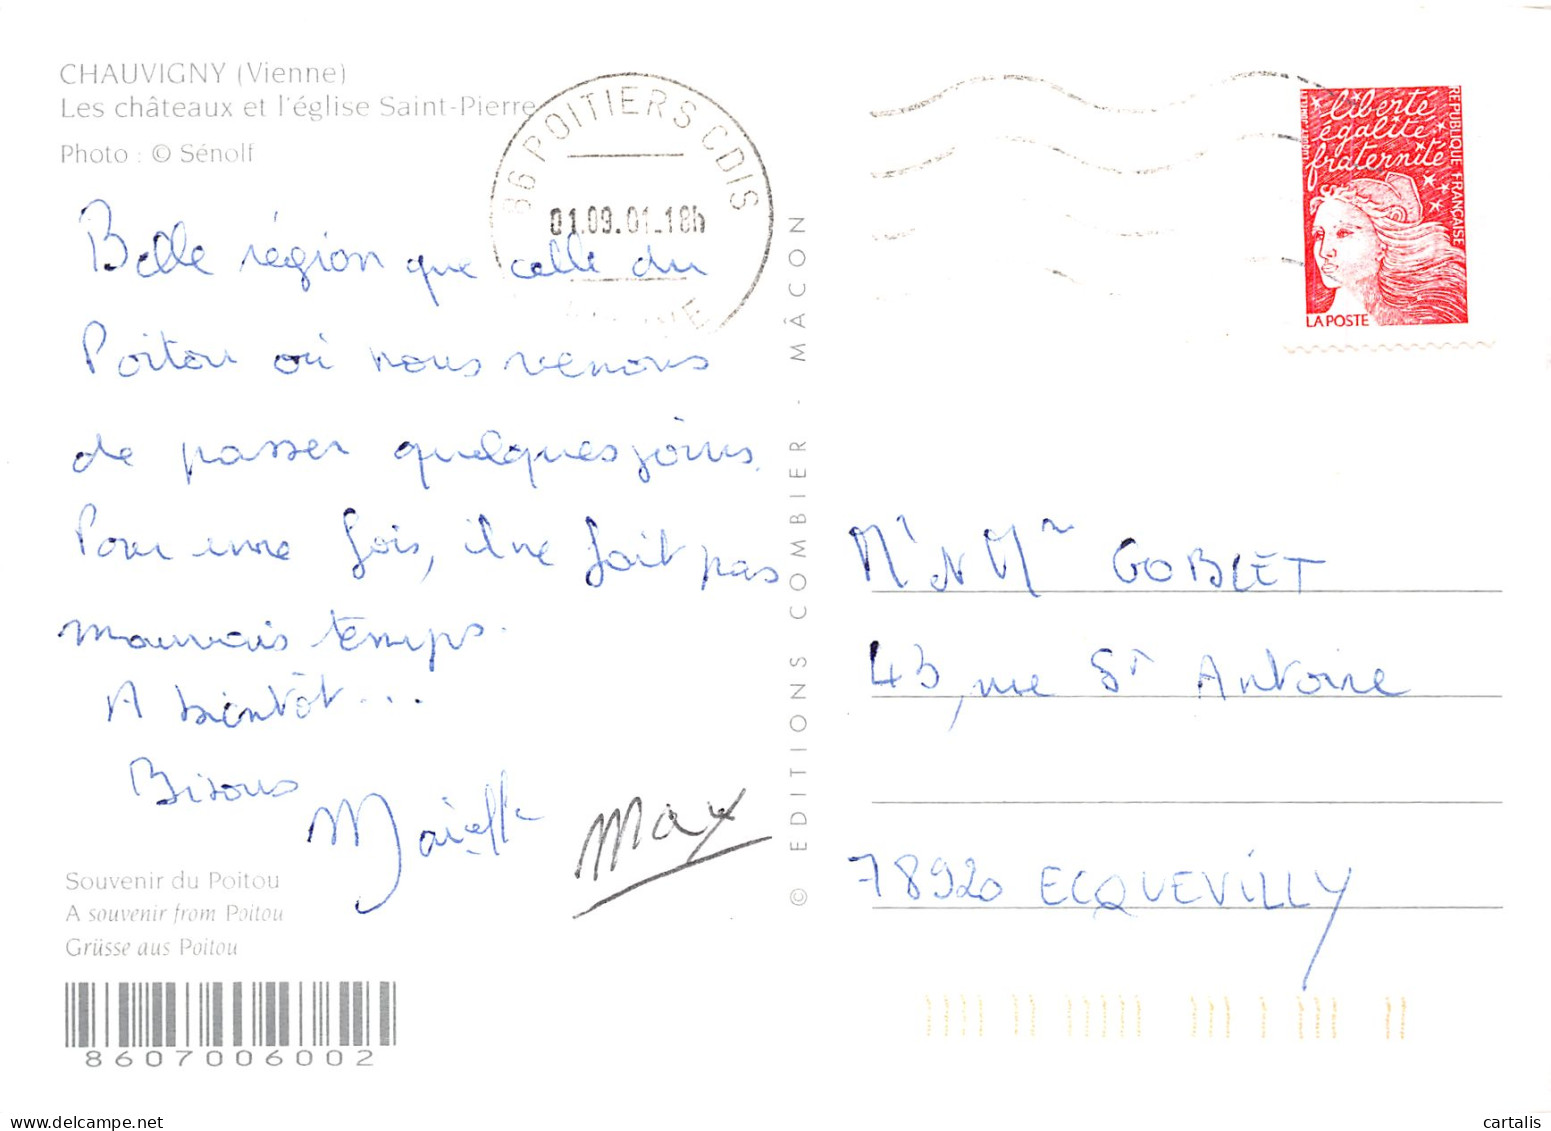 CHAUVIGNY (Vienne)
Les châteaux et l'église Saint-Pierre
Photo : © Sénolf
86 POITIERS CDIS
01.09.01.18h
VIENNE
liberté
égalité
fraternité
REPUBLIQUE FRANÇAISE
LA POSTE
Belle région que celle du
Poitou où nous venons
de passer quelques jours.
Pour une fois, il ne fait pas
mauvais temps.
A bientôt...
Bisous
Max
Souvenir du Poitou
A souvenir from Poitou
Grüsse aus Poitou
8607006002
© EDITIONS COMBIER - MÂCON
GOBLET
43, rue St Antoine
78920 ECQUEVILLY
cartalis